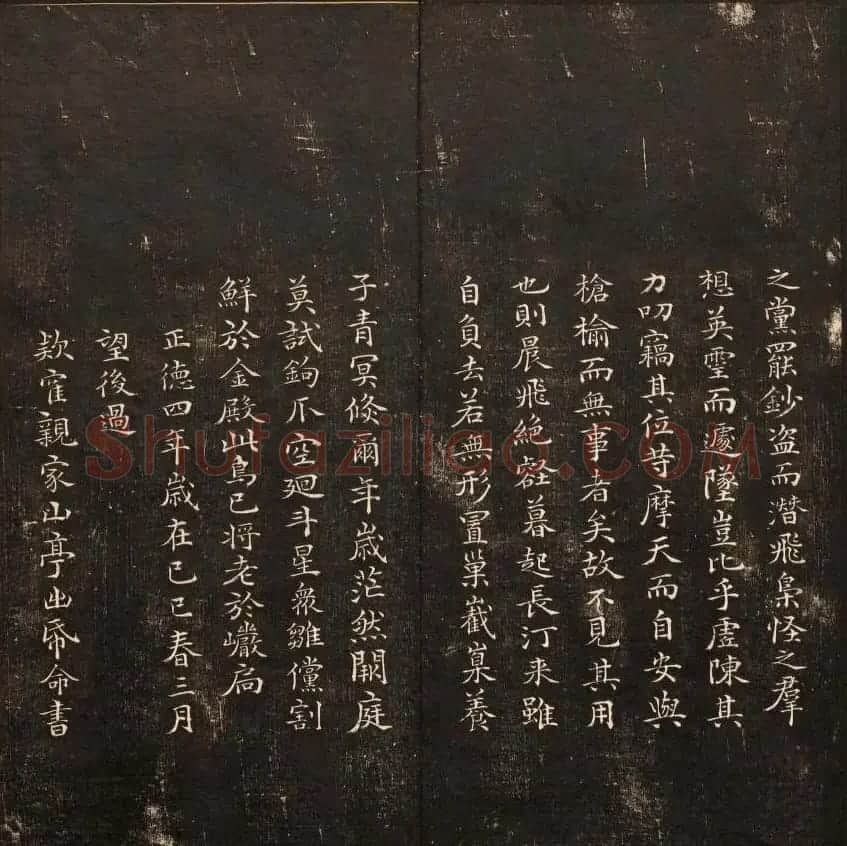 之黨罷鈔盗而潜飛梟怪之羣
想英霊而遽墜豈比乎虚陳其
力叨竊其位等摩天而自安與
槍榆而無事者矣故不見其用
也則晨飛絶壑暮起長汀来雖
自負去若無形冒巢嶻嶪養
子青冥倏爾年歳茫然闕庭
莫試鉤爪空廻斗星衆雛儻割
鮮於金殿此鳥已将老於巖扃
正徳四年歳在己巳春三月
望後過
欵寉親家山亭出帋命書
Shufaziliao.COM